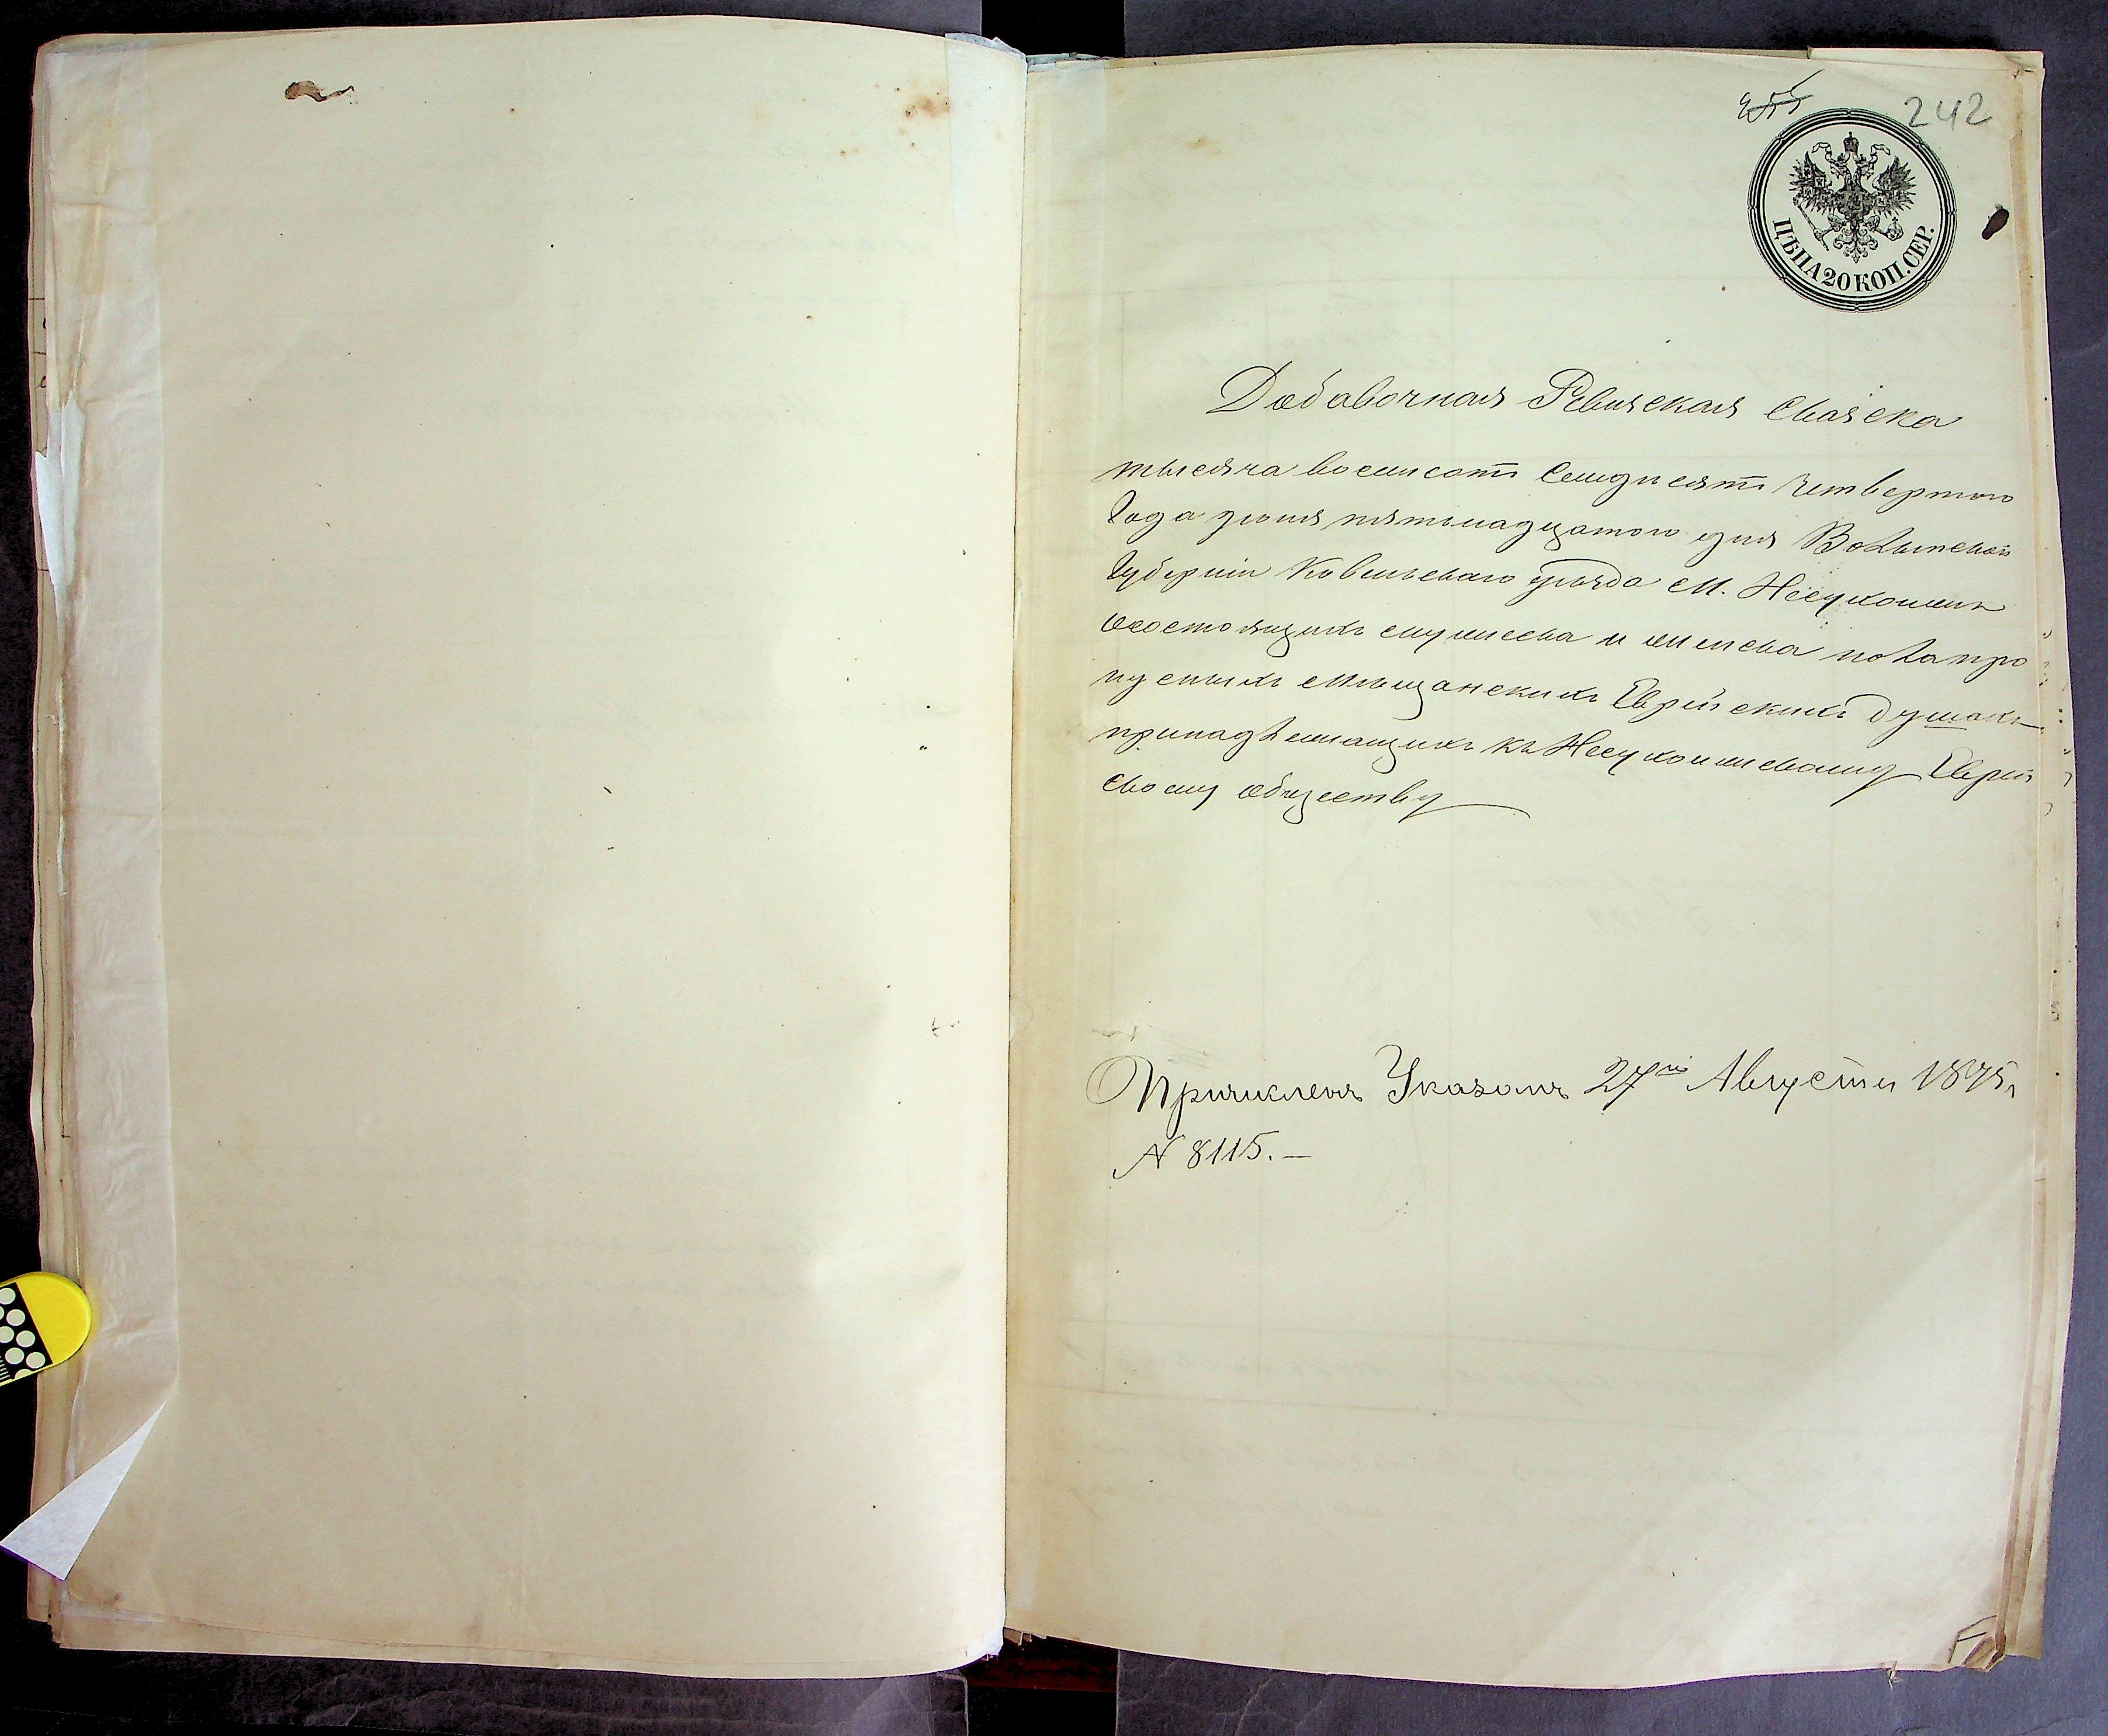 255
242
ЦѢНА 20 КОП. СЕР.
Добавочная Ревизская Сказка
тысяча восемсотъ Семдесятъ Четвертого
Года Юня пятьнадцатого дня Волынской
Губерніи Ковельскаго уѣзда М. Несухоижъ
Осостоящихъ мужеска и женска пола про
пусныхъ Мѣщанскихъ Еврейскихъ душахъ
принадлежащихъ къ Несухоижскому Еврей
скому обществу
Причисленъ Указомъ 27го Августа 1875 г
N 8115.—